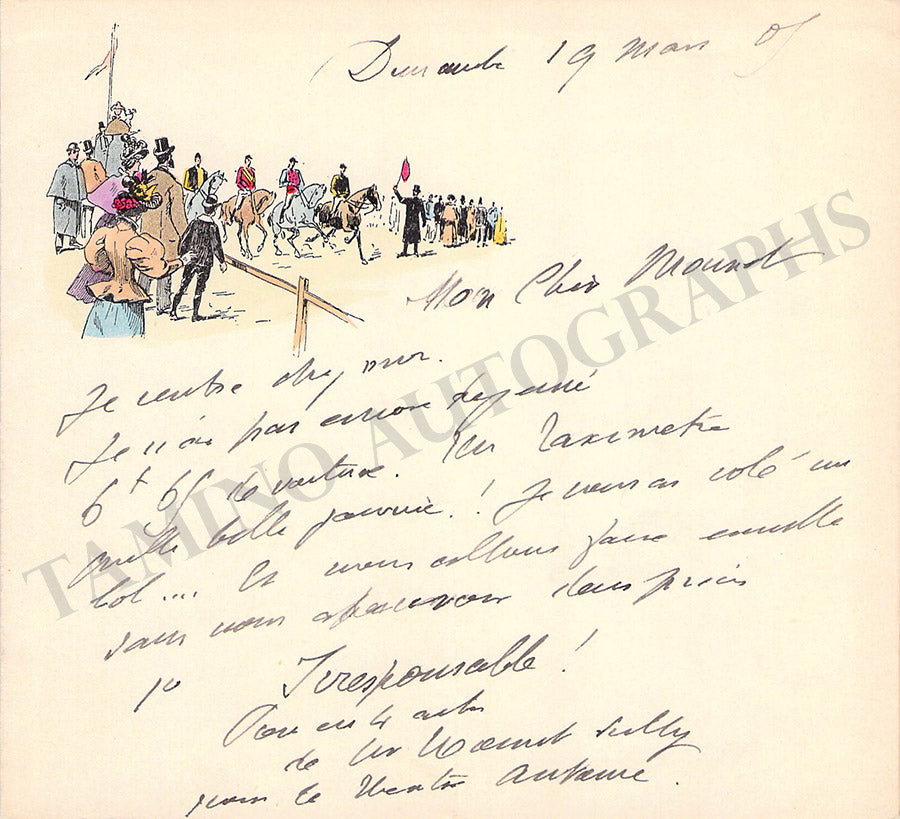 Dimanche 19 Mars 05
Mon Cher Mounet
Je rentre chez moi.
Je n'ai pas encore déjeuné
6f 65 de voiture. Un Taximetre
quelle belle journée! Je vous ai volé un
... Et nous allons faire ensemble
sans nous apercevoir deux pièces
1o Irresponsable!
Pièce en 4 actes
de Mr Mounet Sully
pour le Theatre Antoine.
TAMINO AUTOGRAPHS